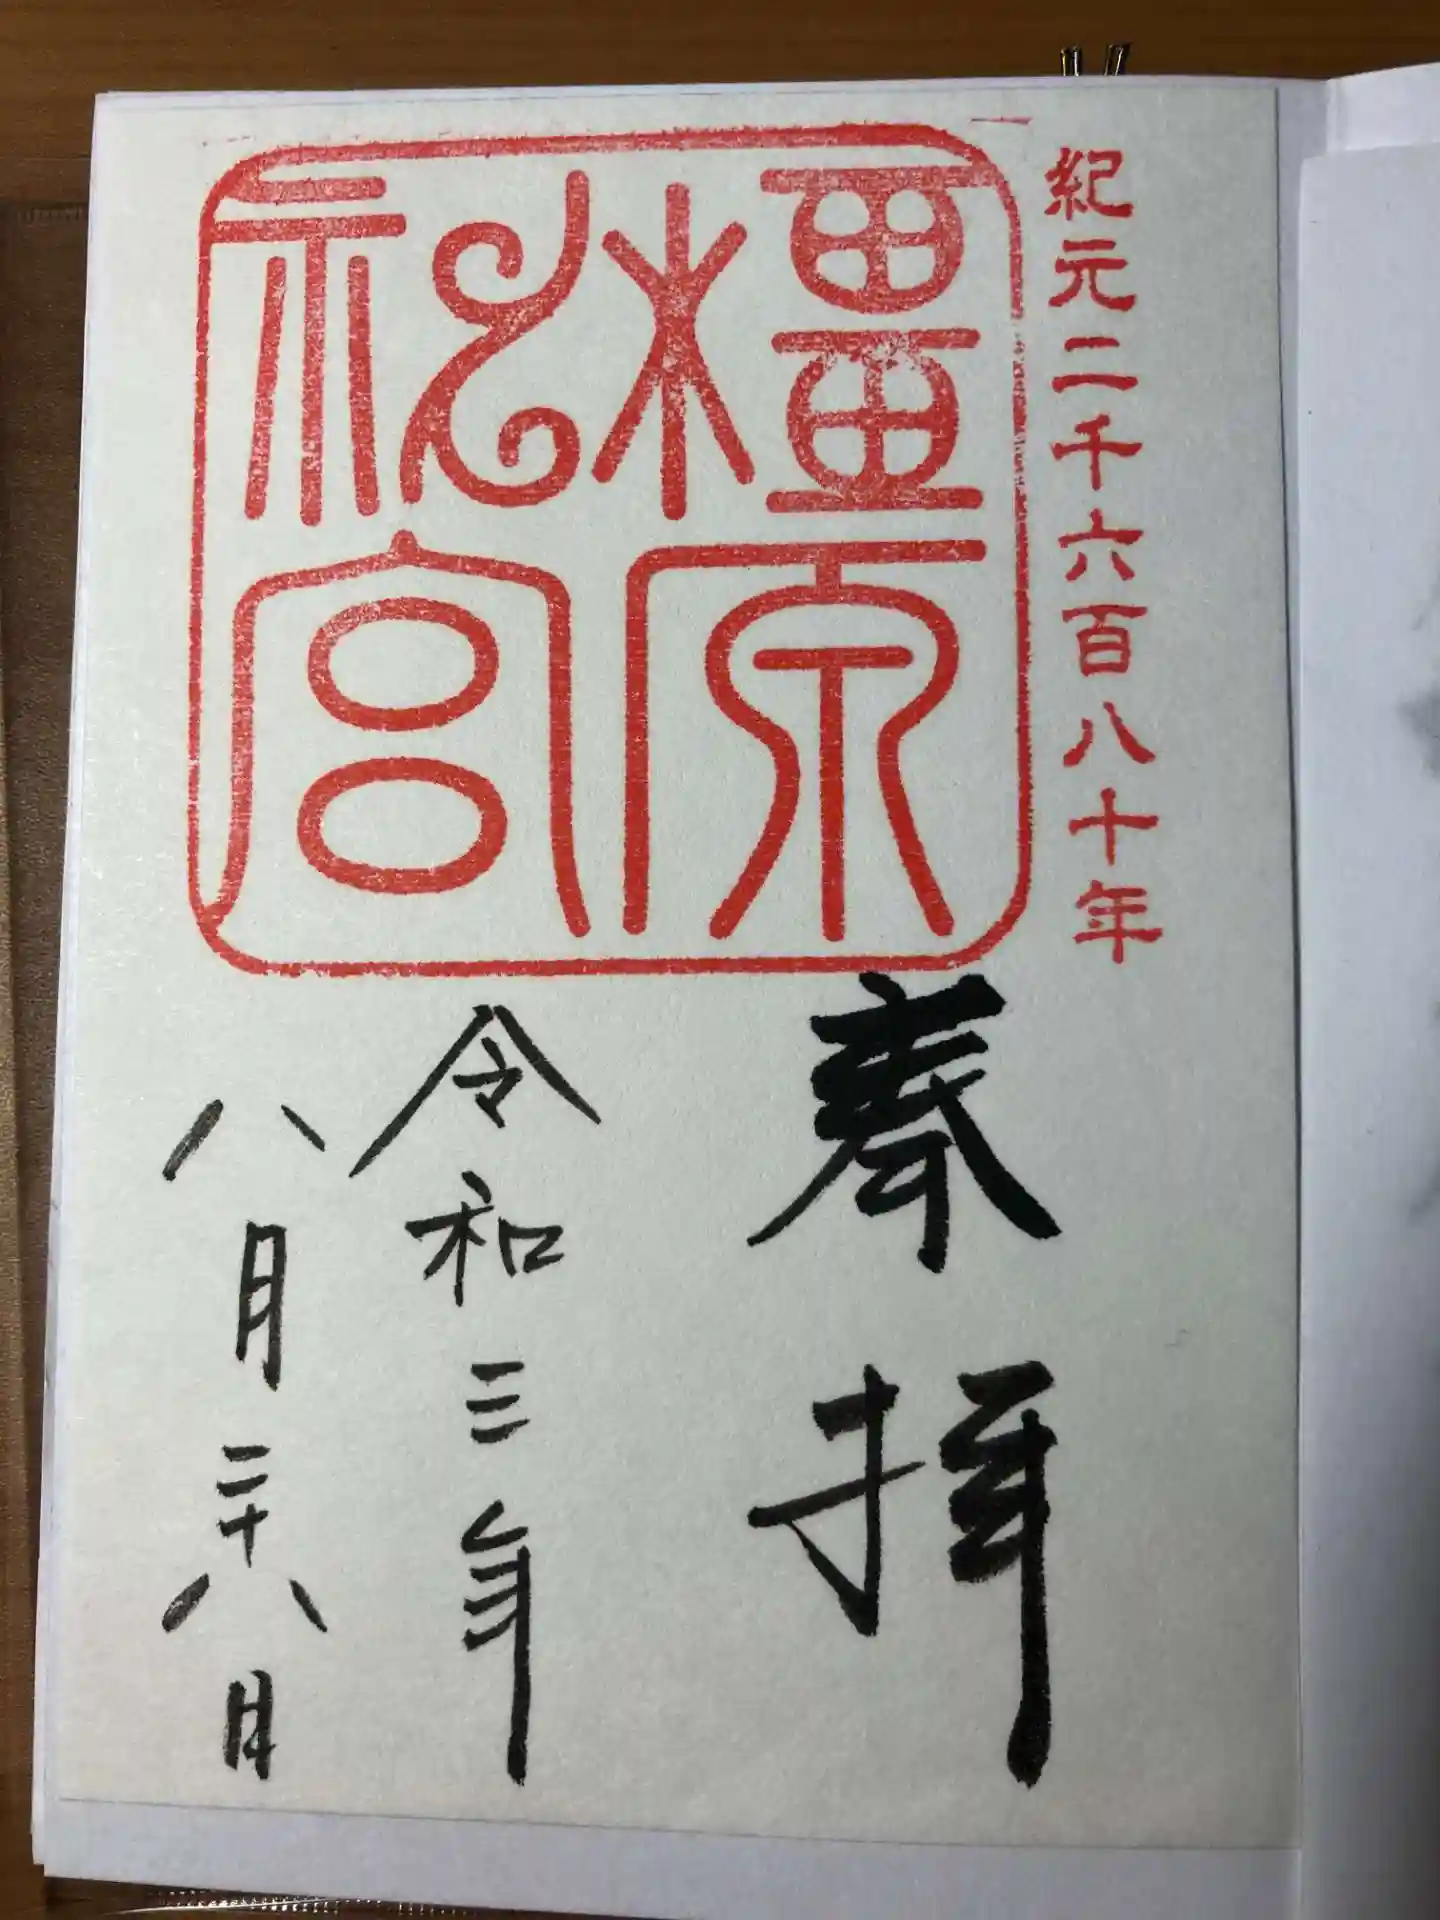 紀元二千六百八十年
橿原
神宮
奉拝
令和三年
八月二十八日